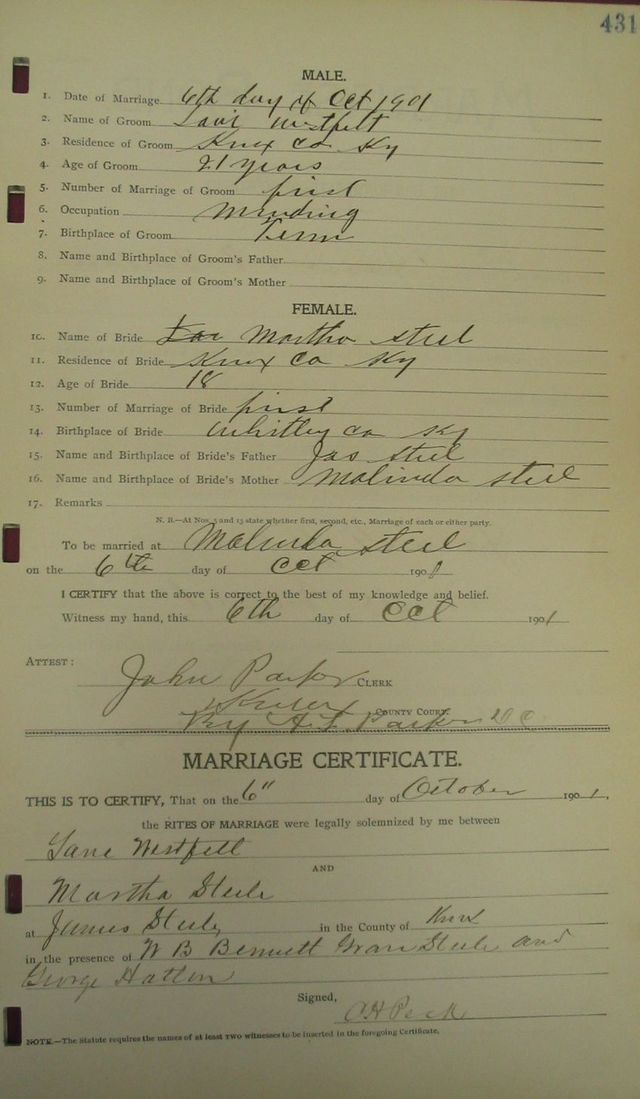 431
MALE.
1. Date of Marriage 6th day of Oct 1901
2. Name of Groom
3. Residence of Groom Knox Co Ky
4. Age of Groom 21 years
5. Number of Marriage of Groom first
6. Occupation
7. Birthplace of Groom Tenn
8. Name and Birthplace of Groom's Father
9. Name and Birthplace of Groom's Mother
FEMALE.
10. Name of Bride Martha Steel
11. Residence of Bride Knox Co Ky
12. Age of Bride 18
13. Number of Marriage of Bride first
14. Birthplace of Bride Whitley co Ky
15. Name and Birthplace of Bride's Father Jas Steel
16. Name and Birthplace of Bride's Mother Malinda Steel
17. Remarks
N. B.—At Nos. 5 and 13 state whether first, second, etc., Marriage of each or either party.
To be married at Malinda Steel
on the 6th day of Oct 1901
I CERTIFY that the above is correct to the best of my knowledge and belief.
Witness my hand, this 6th day of Oct 1901
ATTEST:
John Parker CLERK
Knox COUNTY COURT.
By Parker D C
MARRIAGE CERTIFICATE.
THIS IS TO CERTIFY, That on the 6" day of October 1901,
the RITES OF MARRIAGE were legally solemnized by me between
AND
Martha Steele
at James Steely in the County of Knox
in the presence of W B Bennett Steele and
George Hatton
Signed,
Peck
NOTE.—The Statute requires the names of at least TWO witnesses to be inserted in the foregoing Certificate.